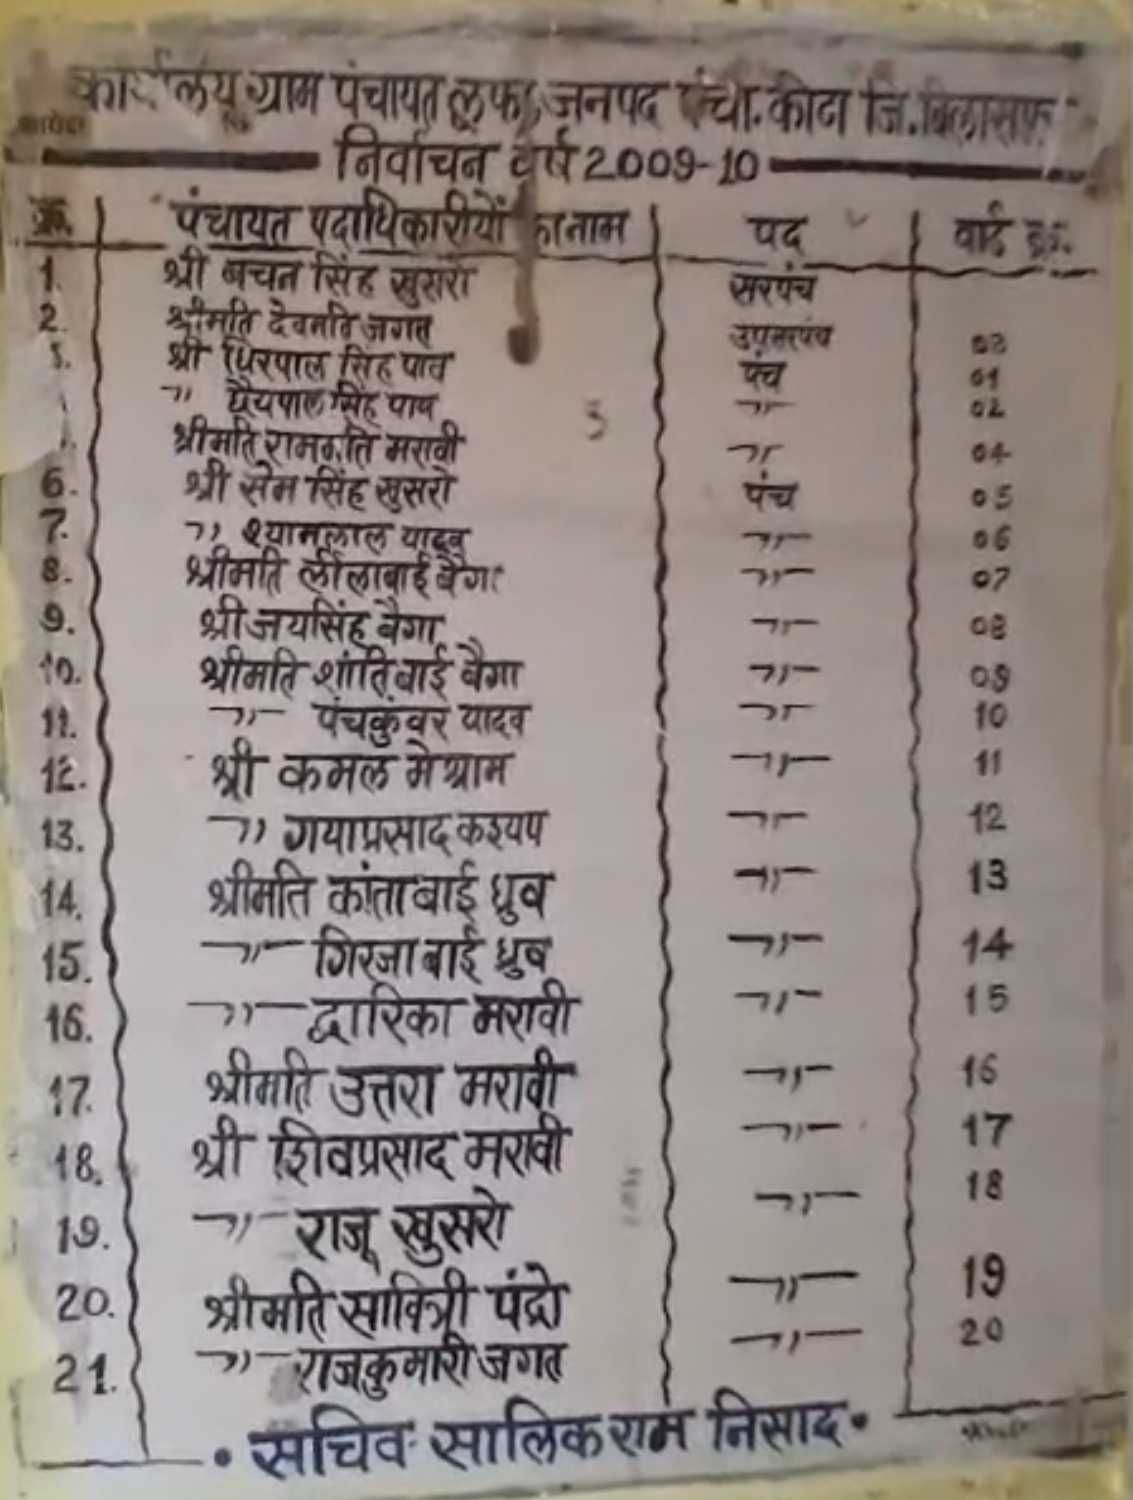 कार्यालय ग्राम पंचायत लूफा, जनपद पंचा. कोटा जि. बिलासपुर
निर्वाचन वर्ष 2009-10
क्र. पंचायत पदाधिकारीयों का नाम पद वार्ड क्र.
1. श्री बचन सिंह खुसरो सरपंच
2. श्रीमति देवमति जगत उपसरपंच 03
श्री धिरपाल सिंह पाव पंच 01
" धैयपाल सिंह पाव " 02
श्रीमति मरावी " 04
6. श्री सेम सिंह खुसरो पंच 05
7. " श्यामलाल यादव " 06
8. श्रीमति लीलाबाई बैगा " 07
9. श्री जयसिंह बैगा " 08
10. श्रीमति शांति बाई बैगा " 09
11. " पंचकुंवर यादव " 10
12. श्री कमल मेश्राम " 11
13. " गयाप्रसाद कश्यप " 12
14. श्रीमति कांता बाई ध्रुव " 13
15. " गिरजा बाई ध्रुव " 14
16. " द्वारिका मरावी " 15
17. श्रीमति उत्तरा मरावी " 16
18. श्री शिवप्रसाद मरावी " 17
19. " राजू खुसरो " 18
20. श्रीमति सावित्री पंद्रो " 19
21. " राजकुमारी जगत " 20
• सचिव- सालिकराम निसाद •